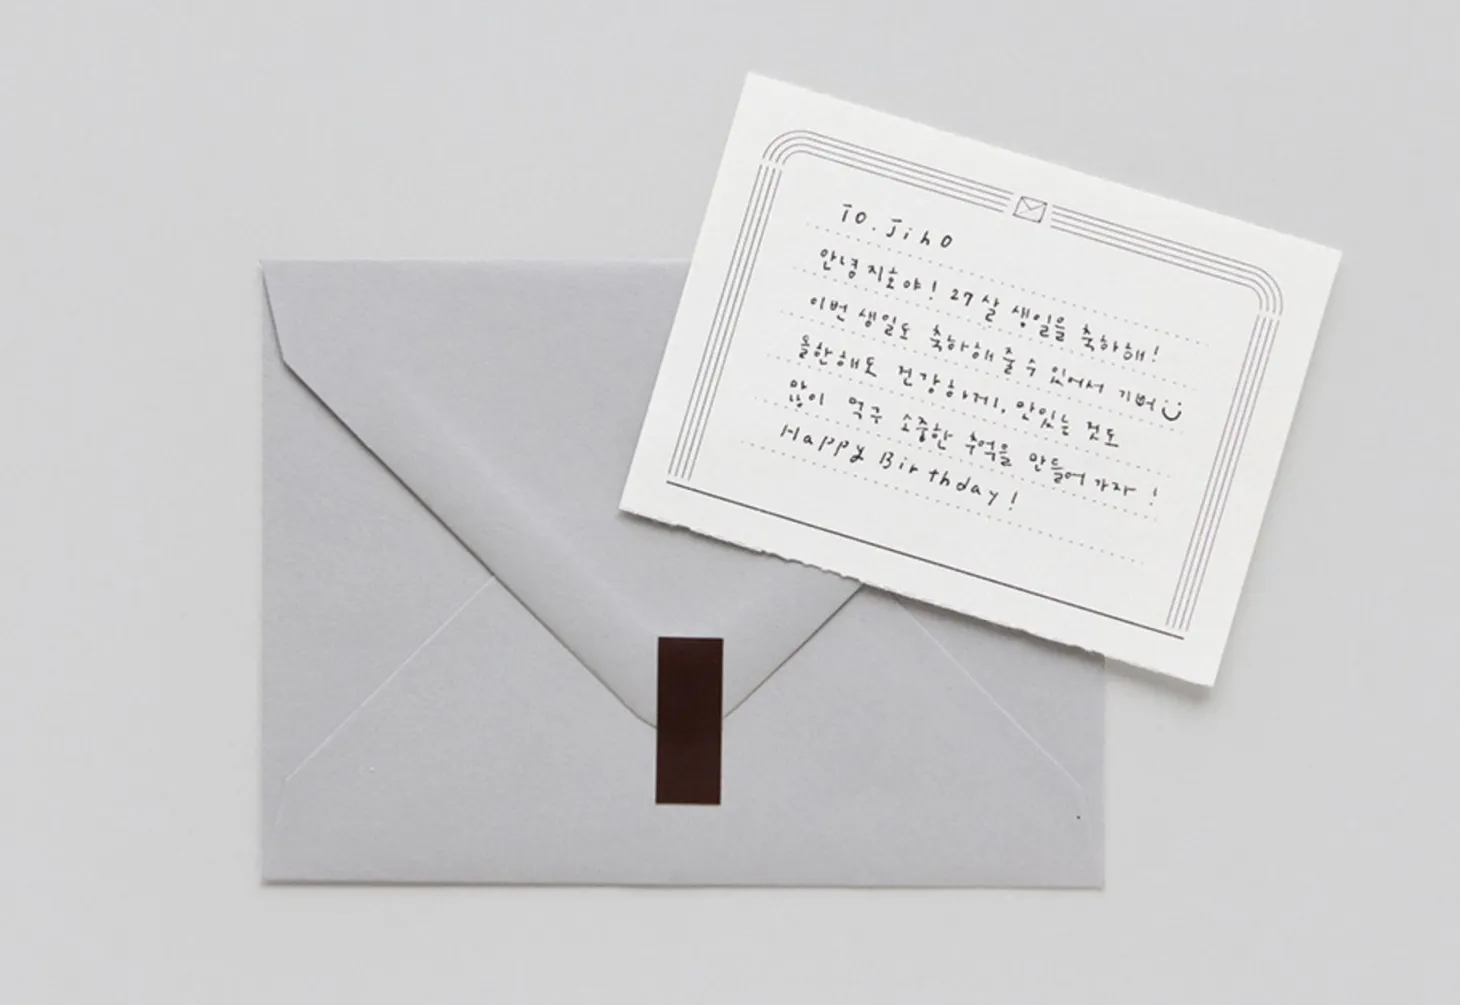 To. Jiho
안녕 지호야! 27살 생일을 축하해!
이번 생일도 축하해 줄 수 있어서 기뻐
올 한 해도 건강하게, 맛있는 것도
많이 먹구 소중한 추억을 만들어 가자!
Happy Birthday!